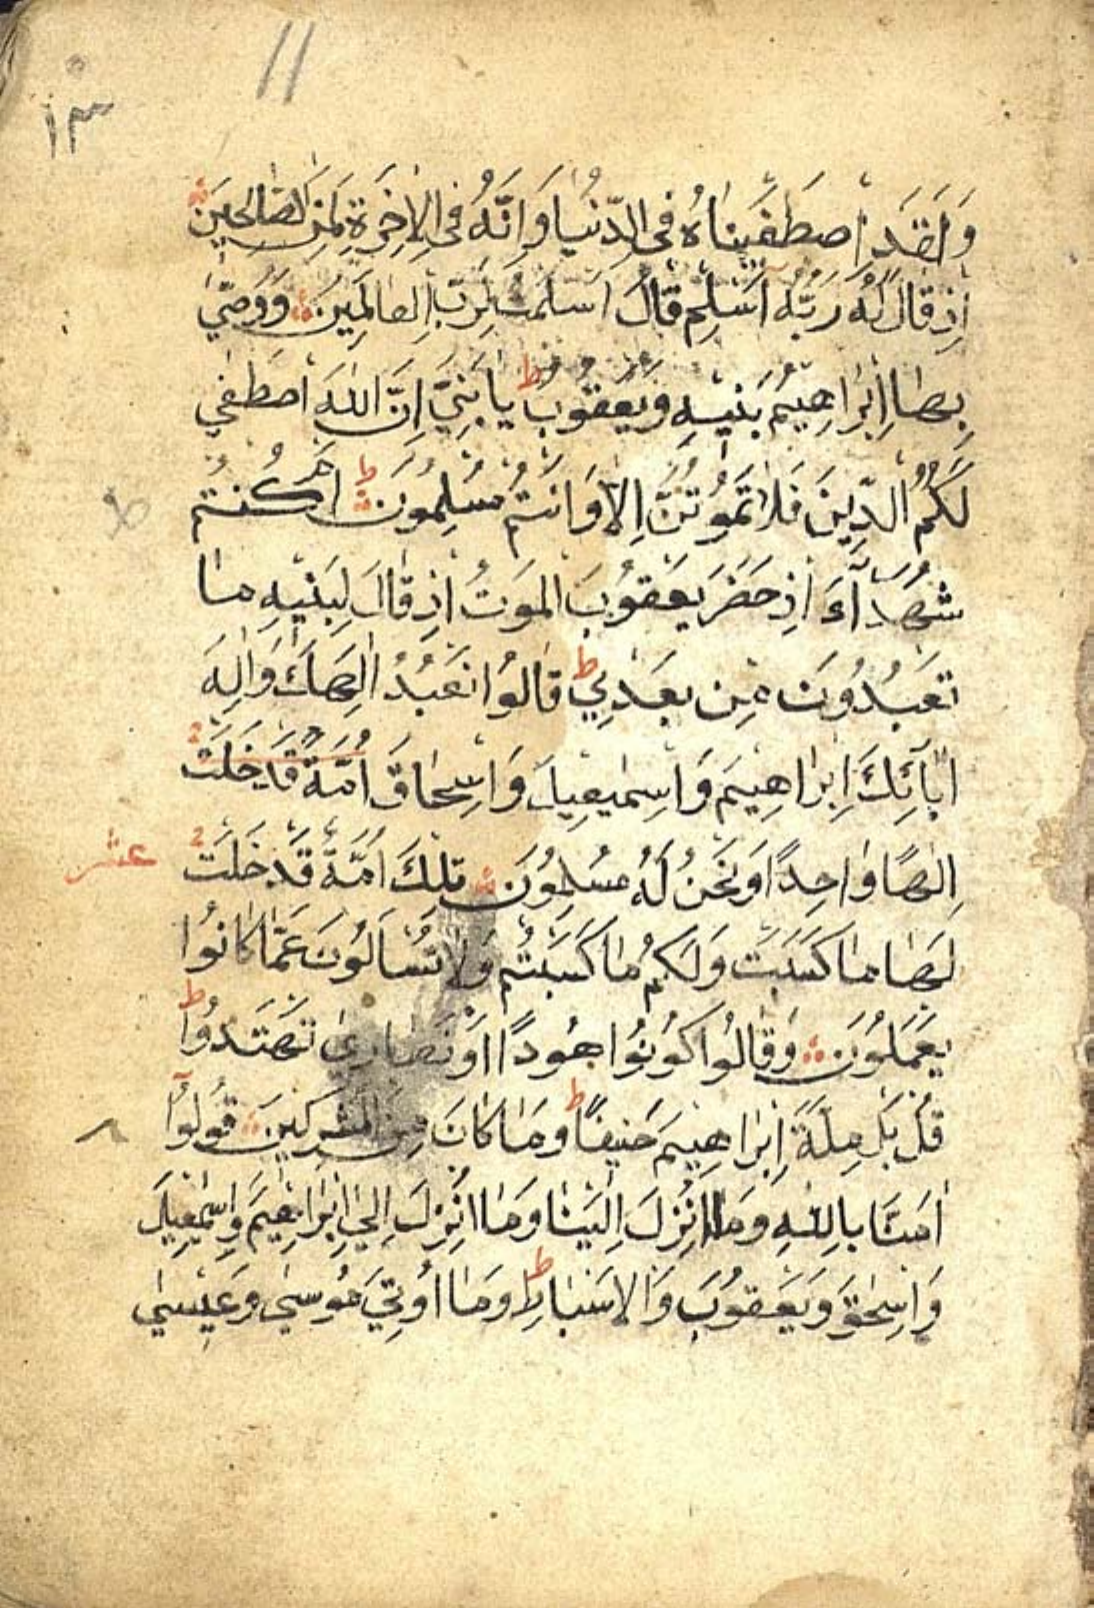 11
١٣
وَلَقَدِ اصْطَفَيْنَاهُ فِى الدُّنْيَا وَاِنَّهُ فِى الْاٰخِرَةِ لَمِنَ الصَّالِحِينَ
اِذْ قَالَ لَهُ رَبُّهُ اَسْلِمْ قَالَ اَسْلَمْتُ لِرَبِّ الْعَالَمِينَ وَوَصّٰى
بِهَا اِبْرَاهِيمُ بَنِيْهِ وَيَعْقُوبُ ط يَا بَنِيَّ اِنَّ اللهَ اصْطَفٰي
لَكُمُ الدِّينَ فَلَا تَمُوتُنَّ اِلَّا وَاَنْتُمْ مُسْلِمُونَ ط اَمْ كُنْتُمْ
شُهَدَآءَ اِذْ حَضَرَ يَعْقُوبَ الْمَوْتُ اِذْ قَالَ لِبَنِيْهِ مَا
تَعْبُدُونَ مِنْ بَعْدِي ط قَالُوا نَعْبُدُ اِلٰهَكَ وَاِلٰهَ
اٰبَآئِكَ اِبْرَاهِيمَ وَاِسْمٰعِيلَ وَاِسْحَاقَ اُمَّةٌ قَدْ خَلَتْ
اِلٰهًا وَاحِدًا وَنَحْنُ لَهُ مُسْلِمُونَ تِلْكَ اُمَّةٌ قَدْ خَلَتْ
عشر
لَهَا مَا كَسَبَتْ وَلَكُمْ مَا كَسَبْتُمْ وَلَا تُسْاَلُونَ عَمَّا كَانُوا
يَعْمَلُونَ وَقَالُوا كُونُوا هُودًا اَوْ نَصَارٰى تَهْتَدُوا ط
قُلْ بَلْ مِلَّةَ اِبْرَاهِيمَ حَنِيفًا ط وَمَا كَانَ مِنَ الْمُشْرِكِينَ قُولُوٓا
اٰمَنَّا بِاللهِ وَمَا اُنْزِلَ اِلَيْنَا وَمَا اُنْزِلَ اِلٰي اِبْرَاهِيمَ وَاِسْمٰعِيلَ
وَاِسْحٰقَ وَيَعْقُوبَ وَالْاَسْبَاطِ ط وَمَا اُوتِيَ مُوسٰي وَعِيسٰي